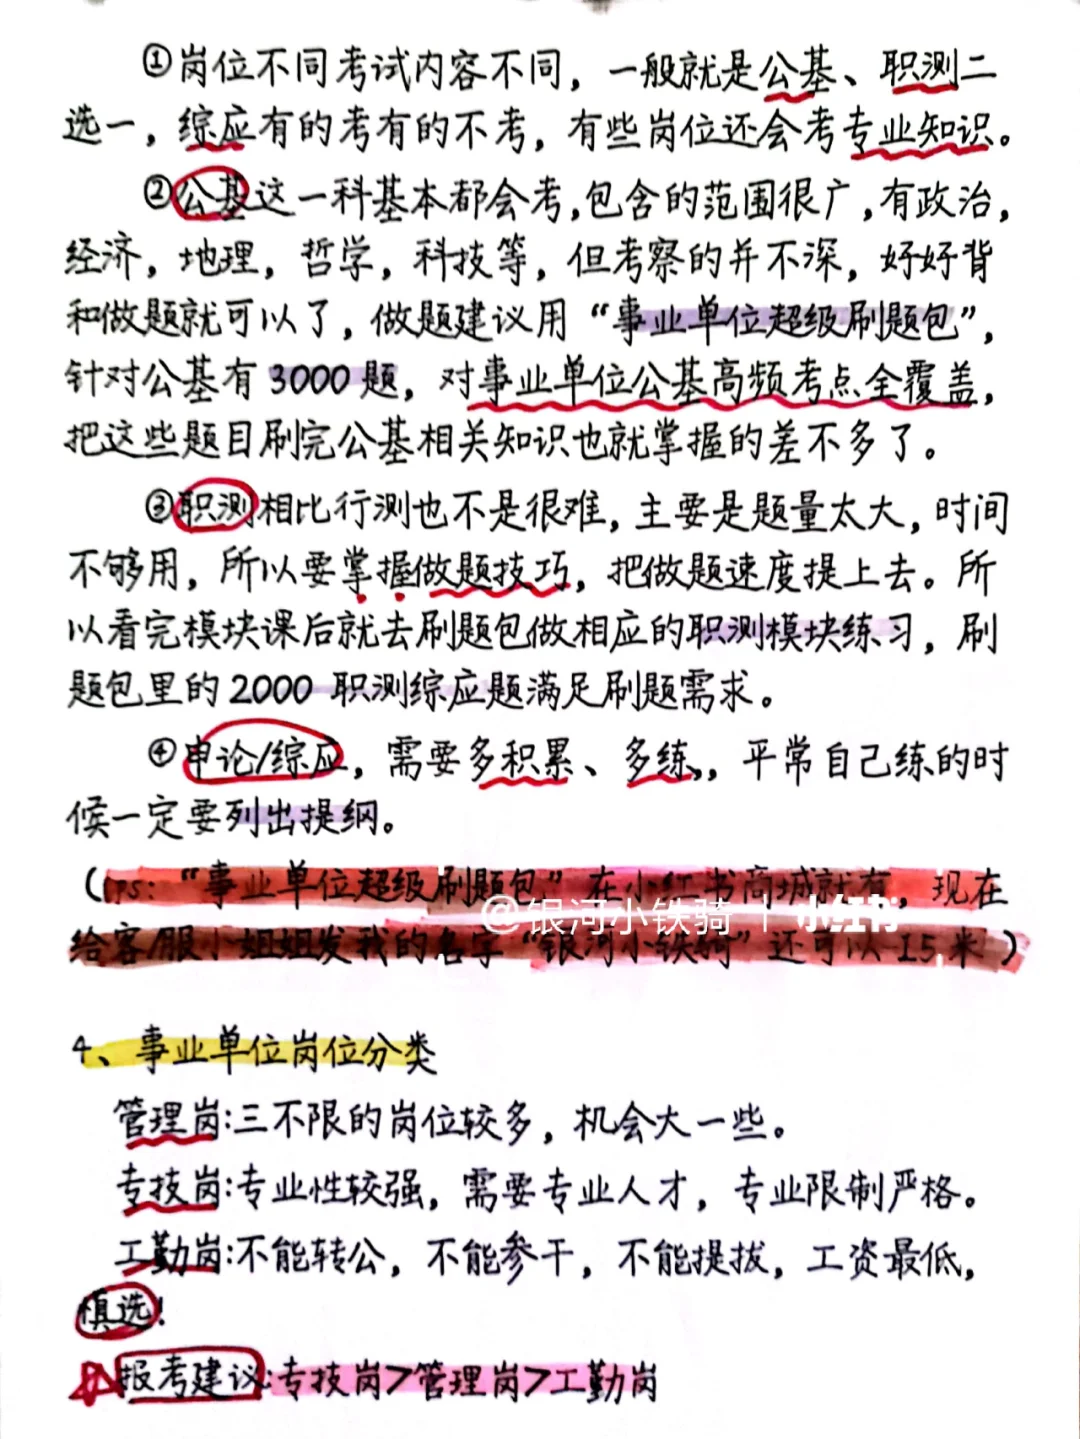 ①岗位不同考试内容不同，一般就是公基、职测二
选一，综应有的考有的不考，有些岗位还会考专业知识。
②公基这一科基本都会考，包含的范围很广，有政治，
经济，地理，哲学，科技等，但考察的并不深，好好背
和做题就可以了，做题建议用“事业单位超级刷题包”，
针对公基有3000题，对事业单位公基高频考点全覆盖，
把这些题目刷完公基相关知识也就掌握的差不多了。
③职测相比行测也不是很难，主要是题量太大，时间
不够用，所以要掌握做题技巧，把做题速度提上去。所
以看完模块课后就去刷题包做相应的职测模块练习，刷
题包里的2000职测综应题满足刷题需求。
④申论/综应，需要多积累、多练，，平常自己练的时
候一定要列出提纲。
（ps：“事业单位超级刷题包”在小红书商城就有，现在
@银河小铁骑 | 小红书
给客服小姐姐发我的名字“银河小铁骑”还可以-15米）
4、事业单位岗位分类
管理岗：三不限的岗位较多，机会大一些。
专技岗：专业性较强，需要专业人才，专业限制严格。
工勤岗：不能转公，不能参干，不能提拔，工资最低，
慎选！
报考建议：专技岗>管理岗>工勤岗